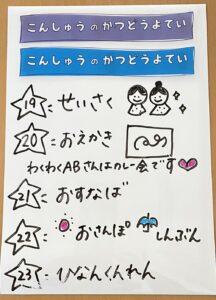 こんしゅう の かつどうよてい
こんしゅう の かつどうよてい
19 : せいさく
20 : おえかき
わくわくABさんはカレー会です
21 : おすなば
22 : おさんぽ しんぶん
23 : ひなんくんれん